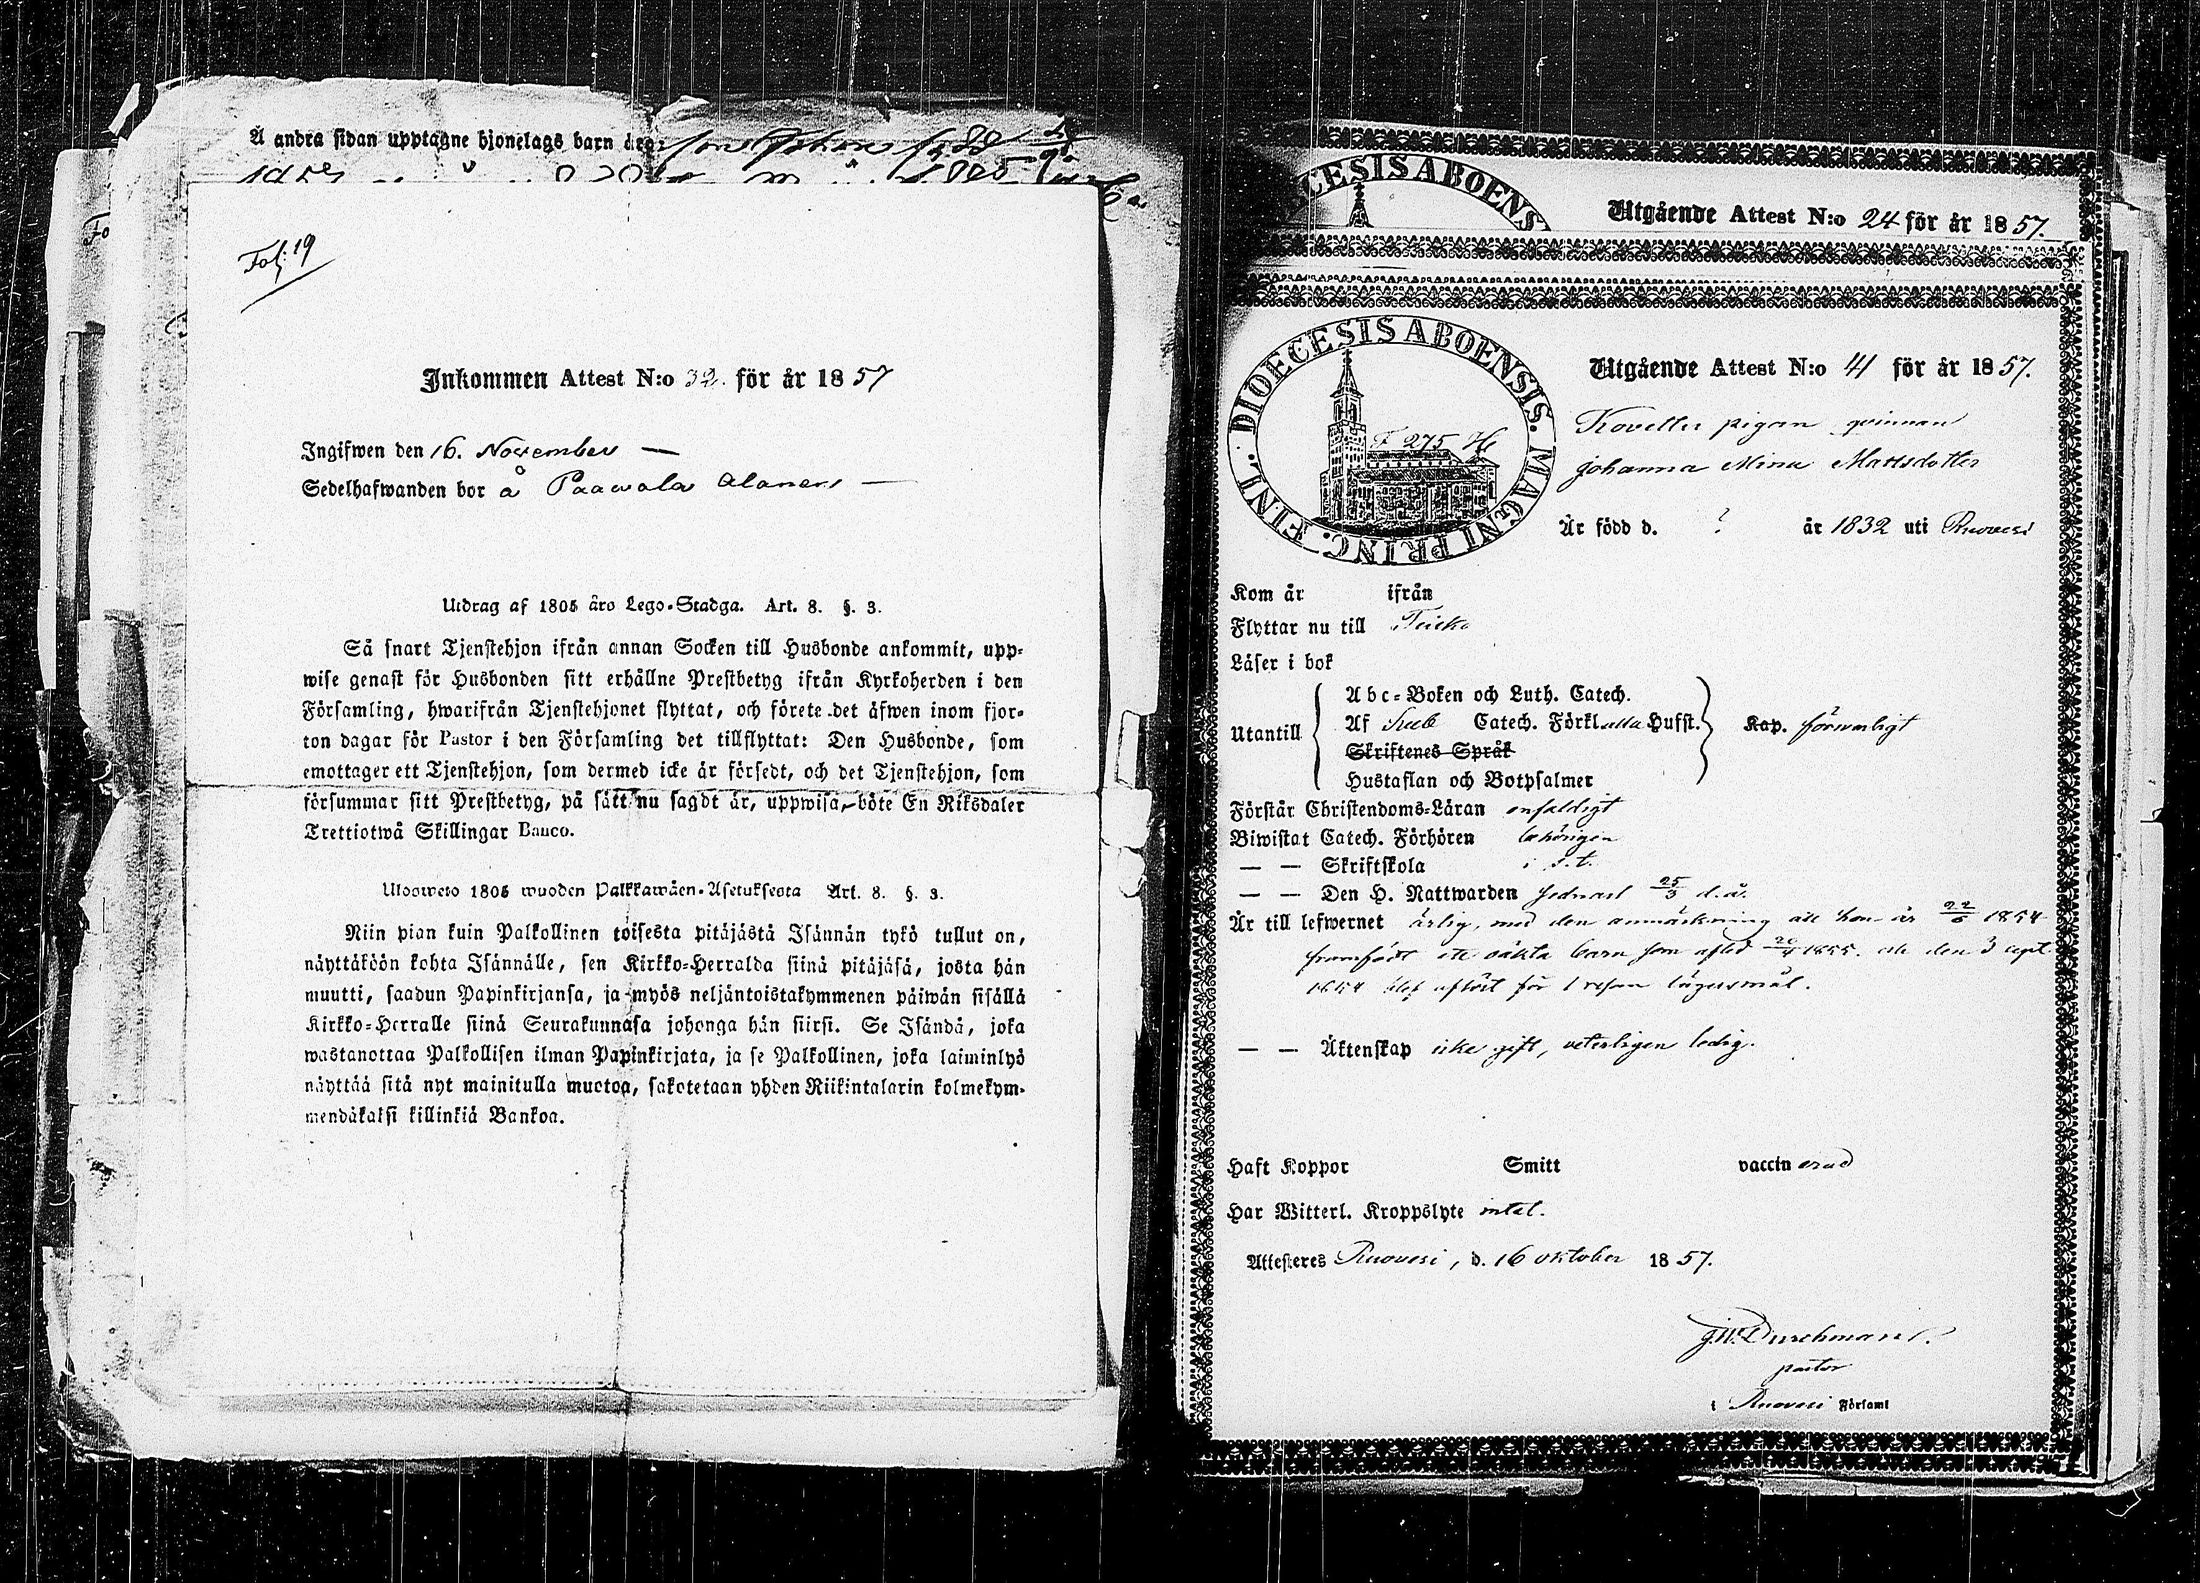 Å andra sidan upptagne hjonelags barn äro: son Johan född
Fol: 19
Inkommen Attest N:o 32. för år 1857
Ingifwen den 16. November —
Sedelhafwanden bor å Paawola Alanen —
Utdrag af 1805 års Lego-Stadga. Art. 8. §. 3.
Så snart Tjenstehjon ifrån annan Socken till Husbonde ankommit, upp-
wise genast för Husbonden sitt erhållne Prestbetyg ifrån Kyrkoherden i den
Församling, hwarifrån Tjenstehjonet flyttat, och förete det äfwen inom fjor-
ton dagar för Pastor i den Församling det tillflyttat: Den Husbonde, som
emottager ett Tjenstehjon, som dermed icke är försedt, och det Tjenstehjon, som
försummar sitt Prestbetyg, på sätt nu sagdt är, uppwisa, böte En Riksdaler
Trettiotwå Skillingar Banco.
Ulosweto 1805 wuoden Palkkawäen-Asetuksesta Art. 8. §. 3.
Niin pian kuin Palkollinen toisesta pitäjästä Isännän tykö tullut on,
näyttäköön kohta Isännälle, sen Kirkko-Herralda siinä pitäjäsä, josta hän
muutti, saadun Papinkirjansa, ja myös neljäntoistakymmenen päiwän sisällä
Kirkko-Herralle siinä Seurakunnasa johonga hän siirsi. Se Isändä, joka
wastanottaa Palkollisen ilman Papinkirjata, ja se Palkollinen, joka laiminlyö
näyttää sitä nyt mainitulla muotoa, sakotetaan yhden Riikintalarin kolmekym-
mendäkaksi killinkiä Bankoa.
CESIS ABOENS
Utgående Attest N:o 24 för år 1857.
DIOECESIS ABOENSIS. MAGNI PRINC. FINL.
F 275 H
Utgående Attest N:o 41 för år 1857.
pigan qvinnan
Johanna Mina Mattsdotter
Är född d. ? år 1832 uti Ruovesi
Kom år ifrån
Flyttar nu till Teisko
Läser i bok
Utantill
Abc-Boken och Luth. Catech.
Af Catech. Förkl. alla Hufst.
Skriftenes Språk
Hustaflan och Botpsalmer
Kap. försvarligt
Förstår Christendoms-Läran enfaldigt
Biwistat Catech. Förhören behörigen
— — Skriftskola i s. t.
— — Den H. Nattwarden sednast 25/3 d. å.
Är till lefwernet ärlig, med den anmärkning att hon är 22/6 1854
framfödt ett oäkta barn som afled 1855. och den 3 sept
1854 blef aflöst för 1 resan lägersmål.
— — Äktenskap icke gift, veterligen ledig.
Haft Koppor Smitt vaccinerad
Har Witterl. Kroppslyte intet.
Attesteres Ruovesi, d. 16 oktober 1857.
G.W. Durchman
pastor
i Ruovesi Församl